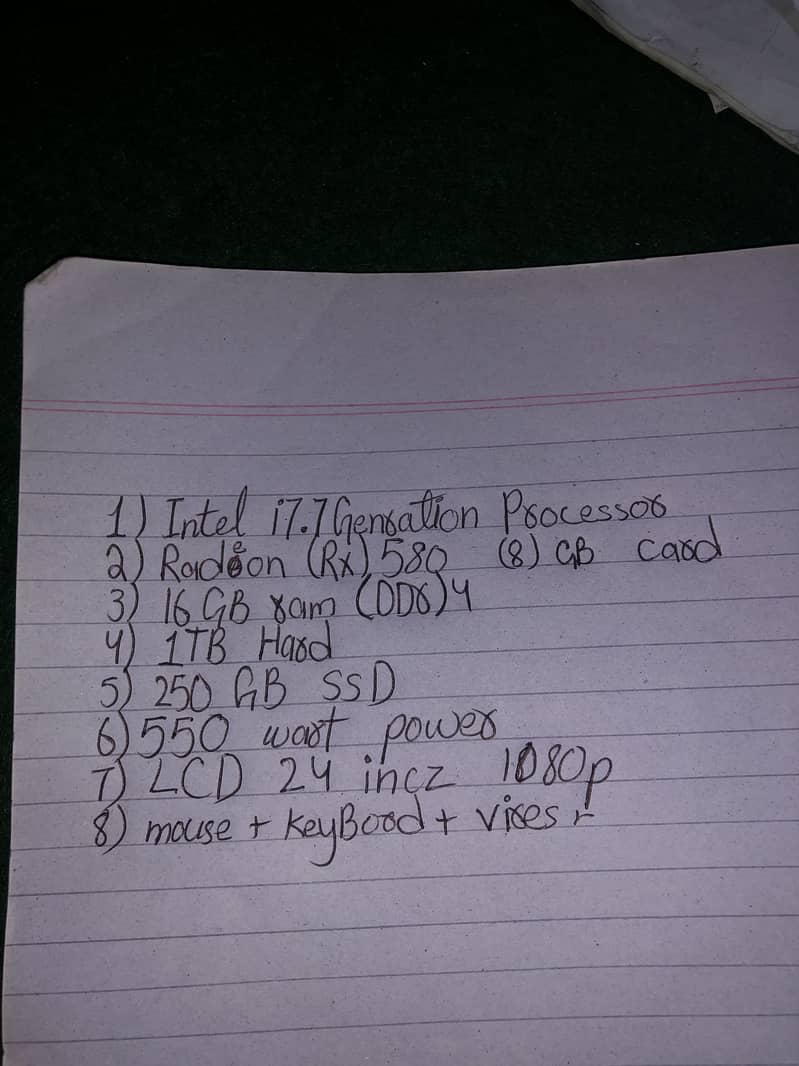 1) Intel i7.7 Genration Processor
2) Radeon (Rx) 580 (8) GB Card
3) 16 GB ram (DDR)4
4) 1TB Hard
5) 250 GB SSD
6) 550 wart power
7) LCD 24 incz 1080p
8) mouse + KeyBord + vires